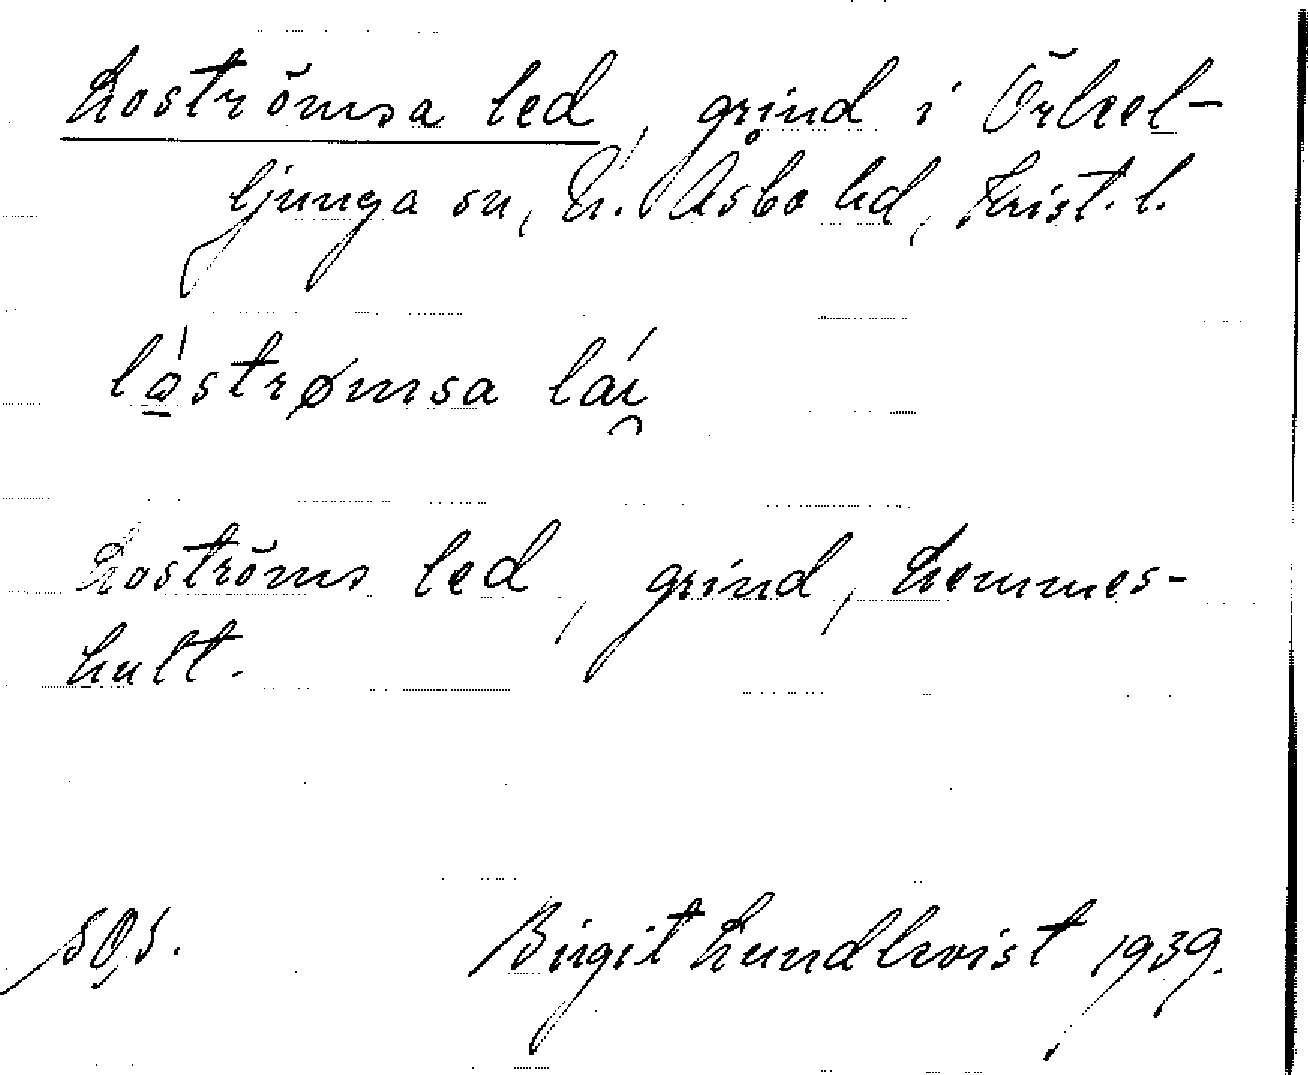 Loströmsa led, grind i Örkel-
ljunga sn, N. Åsbo hd, Krist. l.
lo̱strømsa lai̯
Loströms led, grind, Lemmes-
hult.
SOS. Birgit Lundkvist 1939.